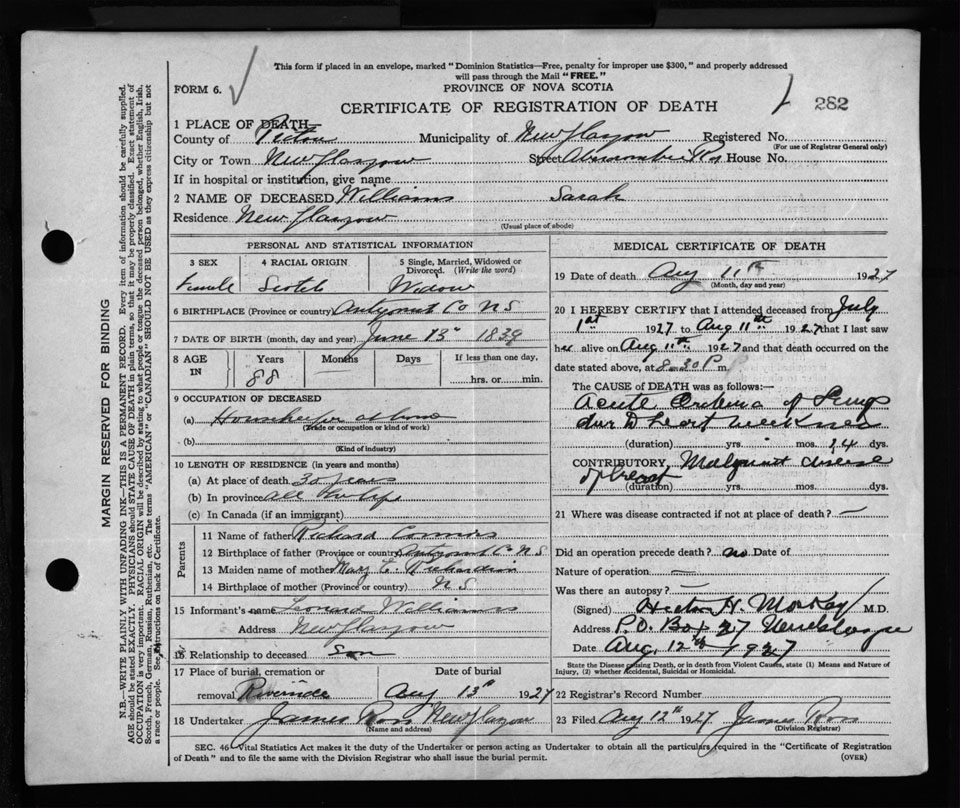 This form if placed in an envelope, marked "Dominion Statistics—Free, penalty for improper use $300," and properly addressed
will pass through the Mail "FREE."
FORM 6.
PROVINCE OF NOVA SCOTIA
CERTIFICATE OF REGISTRATION OF DEATH
282
1 PLACE OF DEATH—
County of Pictou Municipality of New Glasgow Registered No.
(For use of Registrar General only)
City or Town New Glasgow Street Abercrombie Rd House No.
If in hospital or institution, give name
2 NAME OF DECEASED Williams Sarah
Residence New Glasgow
(Usual place of abode)
PERSONAL AND STATISTICAL INFORMATION
3 SEX 4 RACIAL ORIGIN 5 Single, Married, Widowed or Divorced. (Write the word)
Female Scotch Widow
6 BIRTHPLACE (Province or country) Antigonish Co NS
7 DATE OF BIRTH (month, day and year) June 13th 1839
8 AGE IN Years Months Days If less than one day,
88 hrs. or min.
9 OCCUPATION OF DECEASED
(a) Housekeeper at home
(Trade or occupation or kind of work)
(b)
(Kind of industry)
10 LENGTH OF RESIDENCE (in years and months)
(a) At place of death 30 years
(b) In province All her life
(c) In Canada (if an immigrant)
Parents
11 Name of father Richard Connors
12 Birthplace of father (Province or country) Antigonish Co N.S
13 Maiden name of mother Mary
14 Birthplace of mother (Province or country) N S
15 Informant's name Leonard Williams
Address New Glasgow
16 Relationship to deceased Son
17 Place of burial, cremation or removal Riverside
Date of burial Aug 13th 1927
18 Undertaker James Ross New Glasgow
(Name and address)
MEDICAL CERTIFICATE OF DEATH
19 Date of death Aug 11th 1927
(Month, day and year)
20 I HEREBY CERTIFY that I attended deceased from July
1st 1927 to Aug 11th 1927 that I last saw
her alive on Aug 11th 1927 and that death occurred on the
date stated above, at 8-30 P m.
The CAUSE of DEATH was as follows:—
Acute Oedema of Lungs
due to Heart weakness
(duration) yrs. mos. 14 dys.
CONTRIBUTORY Malignant disease
of breast
(duration) yrs. mos. dys.
21 Where was disease contracted if not at place of death? —
Did an operation precede death? no Date of
Nature of operation —
Was there an autopsy? —
(Signed) Hector H. MacKay M.D.
Address P.O. Box 27 New Glasgow
Date Aug. 12th 1927
State the Disease causing Death, or in death from Violent Causes, state (1) Means and Nature of
Injury, (2) whether Accidental, Suicidal or Homicidal.
22 Registrar's Record Number
23 Filed Aug 12th 1927 James Ross
(Division Registrar)
SEC. 46 Vital Statistics Act makes it the duty of the Undertaker or person acting as Undertaker to obtain all the particulars required in the "Certificate of Registration
of Death" and to file the same with the Division Registrar who shall issue the burial permit.
(OVER)
MARGIN RESERVED FOR BINDING
N.B.—WRITE PLAINLY WITH UNFADING INK—THIS IS A PERMANENT RECORD. Every item of information should be carefully supplied.
AGE should be stated EXACTLY. PHYSICIANS should STATE CAUSE OF DEATH in plain terms, so that it may be properly classified. Exact statement of
OCCUPATION is very important. RACIAL ORIGIN will be described by stating to what people or tongue the deceased person belonged, whether English, Irish,
Scotch, French, German, Russian, Ruthenian, etc. The terms "AMERICAN" or "CANADIAN" SHOULD NOT BE USED as they express citizenship but not
a race or people. See instructions on back of Certificate.